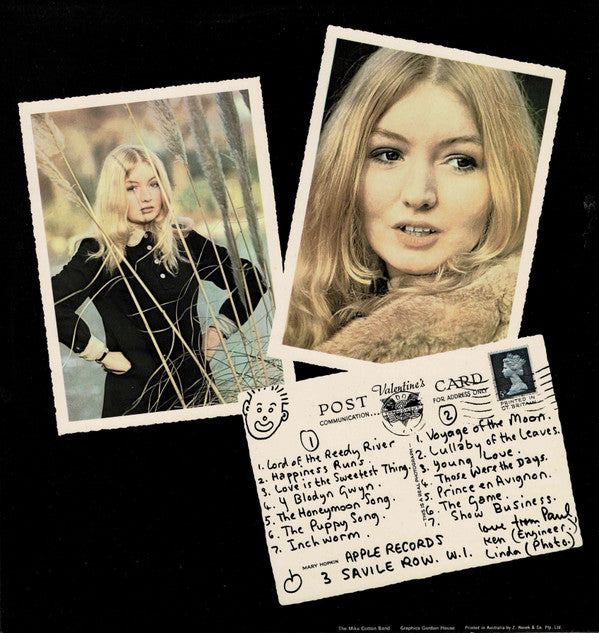 POST Valentine's CARD
COMMUNICATION...
FOR ADDRESS ONLY
PRINTED IN
GT. BRITAIN
THIS IS A REAL PHOTOGRAPH
①
1. Lord of the Reedy River
2. Happiness Runs.
3. Love is the Sweetest Thing.
4. Y Blodyn Gwyn.
5. The Honeymoon Song.
6. The Puppy Song.
7. Inch worm.
②
1. Voyage of the Moon.
2. Lullaby of the Leaves.
3. Young Love.
4. Those Were the Days.
5. Prince en Avignon.
6. The Game.
7. Show Business.
love from Paul,
Ken (Engineer)
Linda (Photo.)
MARY HOPKIN
APPLE RECORDS
3 SAVILE ROW. W.1.
The Mike Cotton Band Graphics Gordon House Printed in Australia by Z. Nosek & Co. Pty. Ltd.